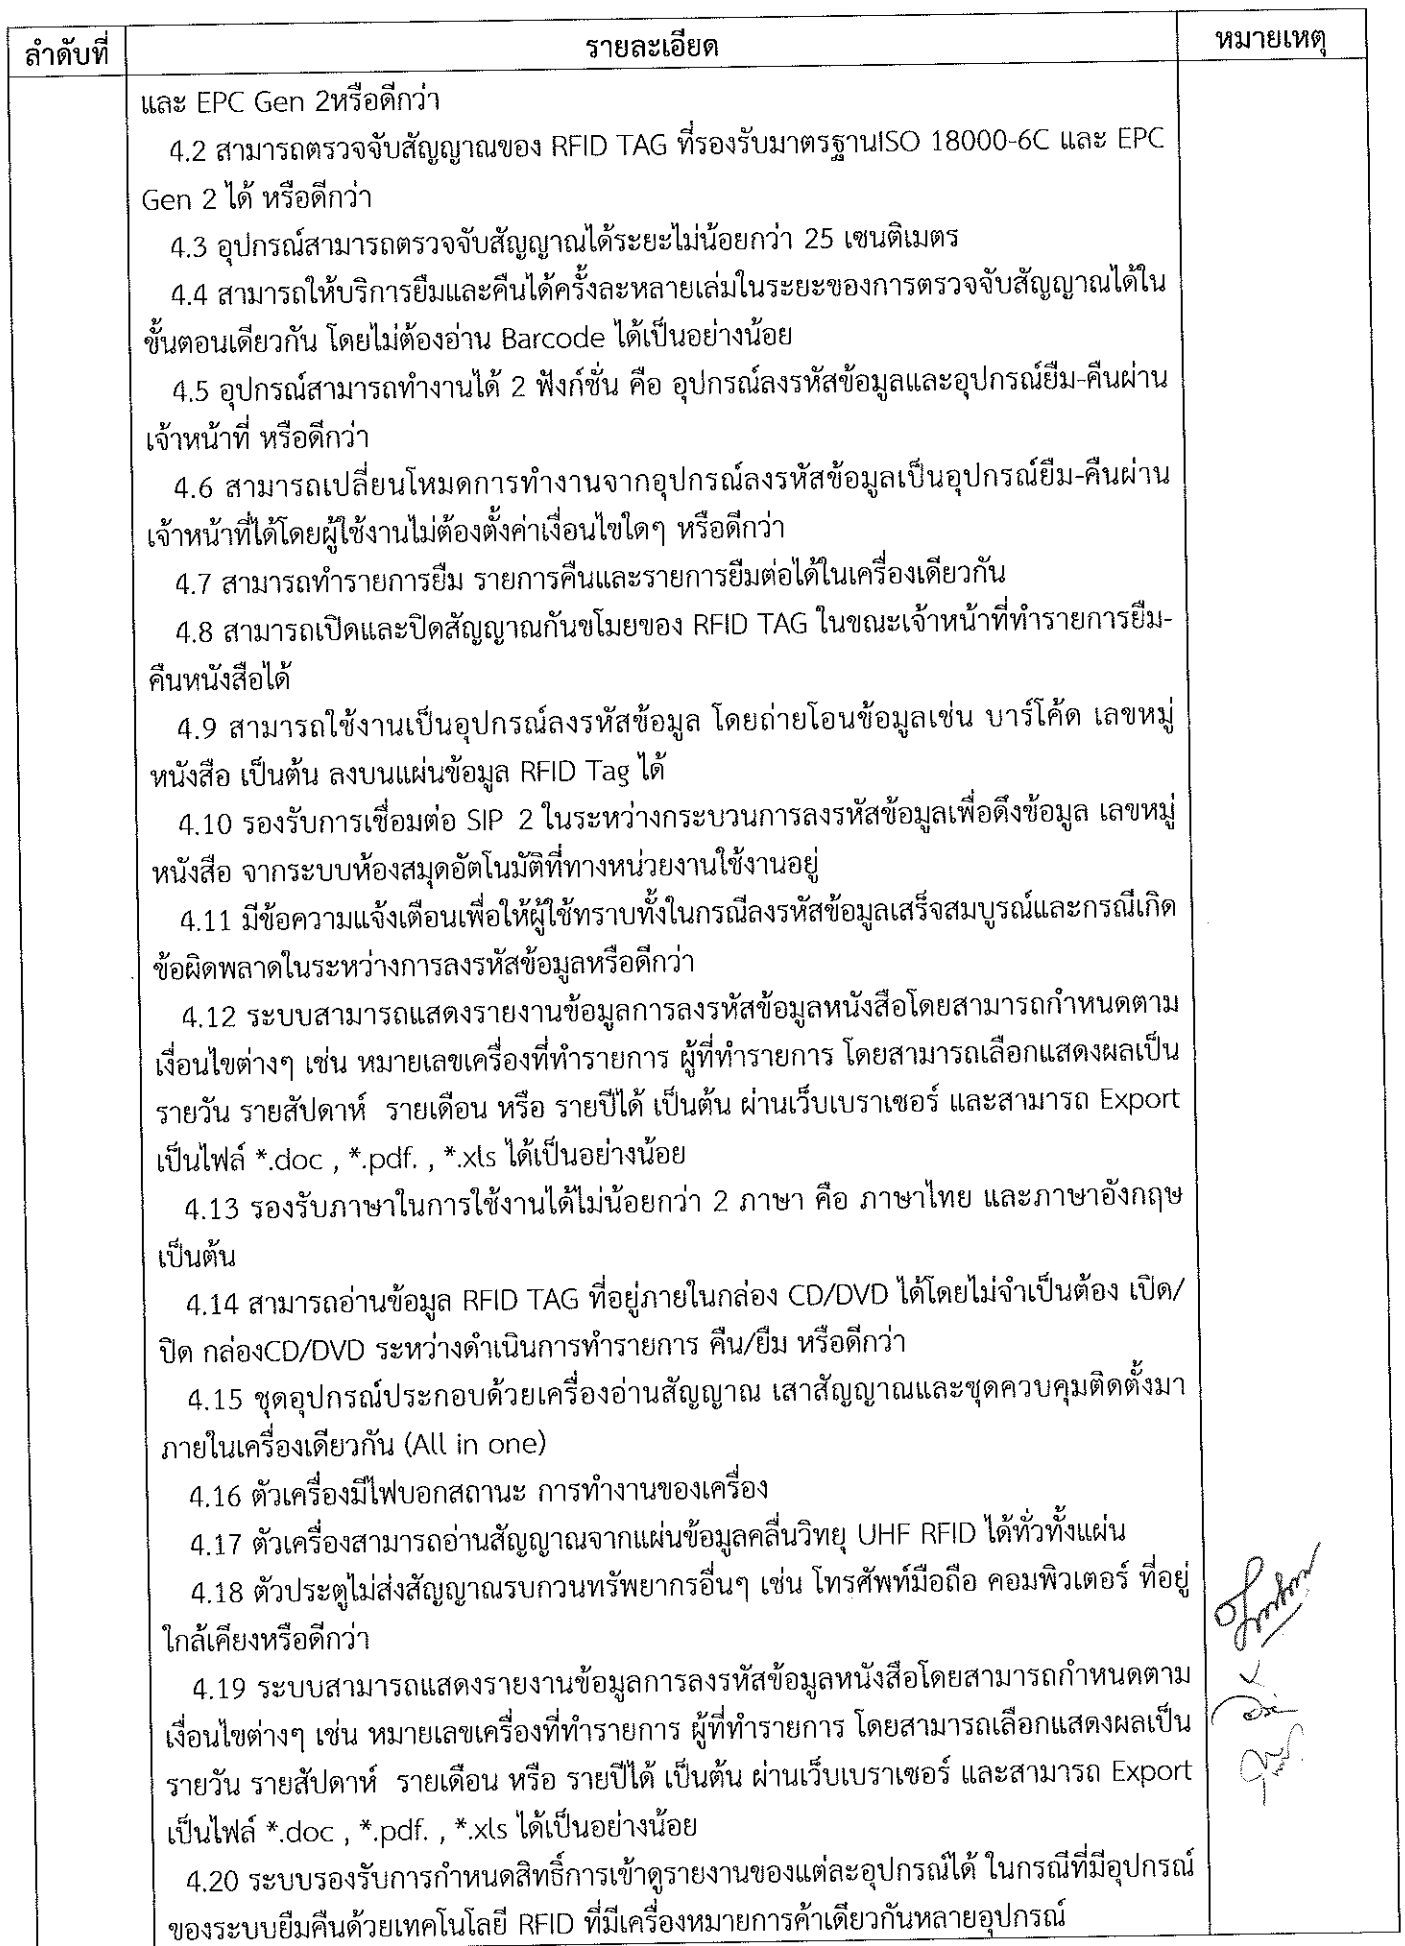 ลำดับที่ รายละเอียด หมายเหตุ
และ EPC Gen 2หรือดีกว่า
4.2 สามารถตรวจจับสัญญาณของ RFID TAG ที่รองรับมาตรฐานISO 18000-6C และ EPC
Gen 2 ได้ หรือดีกว่า
4.3 อุปกรณ์สามารถตรวจจับสัญญาณได้ระยะไม่น้อยกว่า 25 เซนติเมตร
4.4 สามารถให้บริการยืมและคืนได้ครั้งละหลายเล่มในระยะของการตรวจจับสัญญาณได้ใน
ขั้นตอนเดียวกัน โดยไม่ต้องอ่าน Barcode ได้เป็นอย่างน้อย
4.5 อุปกรณ์สามารถทำงานได้ 2 ฟังก์ชั่น คือ อุปกรณ์ลงรหัสข้อมูลและอุปกรณ์ยืม-คืนผ่าน
เจ้าหน้าที่ หรือดีกว่า
4.6 สามารถเปลี่ยนโหมดการทำงานจากอุปกรณ์ลงรหัสข้อมูลเป็นอุปกรณ์ยืม-คืนผ่าน
เจ้าหน้าที่ได้โดยผู้ใช้งานไม่ต้องตั้งค่าเงื่อนไขใดๆ หรือดีกว่า
4.7 สามารถทำรายการยืม รายการคืนและรายการยืมต่อได้ในเครื่องเดียวกัน
4.8 สามารถเปิดและปิดสัญญาณกันขโมยของ RFID TAG ในขณะเจ้าหน้าที่ทำรายการยืม-
คืนหนังสือได้
4.9 สามารถใช้งานเป็นอุปกรณ์ลงรหัสข้อมูล โดยถ่ายโอนข้อมูลเช่น บาร์โค้ด เลขหมู่
หนังสือ เป็นต้น ลงบนแผ่นข้อมูล RFID Tag ได้
4.10 รองรับการเชื่อมต่อ SIP 2 ในระหว่างกระบวนการลงรหัสข้อมูลเพื่อดึงข้อมูล เลขหมู่
หนังสือ จากระบบห้องสมุดอัตโนมัติที่ทางหน่วยงานใช้งานอยู่
4.11 มีข้อความแจ้งเตือนเพื่อให้ผู้ใช้ทราบทั้งในกรณีลงรหัสข้อมูลเสร็จสมบูรณ์และกรณีเกิด
ข้อผิดพลาดในระหว่างการลงรหัสข้อมูลหรือดีกว่า
4.12 ระบบสามารถแสดงรายงานข้อมูลการลงรหัสข้อมูลหนังสือโดยสามารถกำหนดตาม
เงื่อนไขต่างๆ เช่น หมายเลขเครื่องที่ทำรายการ ผู้ที่ทำรายการ โดยสามารถเลือกแสดงผลเป็น
รายวัน รายสัปดาห์ รายเดือน หรือ รายปีได้ เป็นต้น ผ่านเว็บเบราเซอร์ และสามารถ Export
เป็นไฟล์ *.doc , *.pdf. , *.xls ได้เป็นอย่างน้อย
4.13 รองรับภาษาในการใช้งานได้ไม่น้อยกว่า 2 ภาษา คือ ภาษาไทย และภาษาอังกฤษ
เป็นต้น
4.14 สามารถอ่านข้อมูล RFID TAG ที่อยู่ภายในกล่อง CD/DVD ได้โดยไม่จำเป็นต้อง เปิด/
ปิด กล่องCD/DVD ระหว่างดำเนินการทำรายการ คืน/ยืม หรือดีกว่า
4.15 ชุดอุปกรณ์ประกอบด้วยเครื่องอ่านสัญญาณ เสาสัญญาณและชุดควบคุมติดตั้งมา
ภายในเครื่องเดียวกัน (All in one)
4.16 ตัวเครื่องมีไฟบอกสถานะ การทำงานของเครื่อง
4.17 ตัวเครื่องสามารถอ่านสัญญาณจากแผ่นข้อมูลคลื่นวิทยุ UHF RFID ได้ทั่วทั้งแผ่น
4.18 ตัวประตูไม่ส่งสัญญาณรบกวนทรัพยากรอื่นๆ เช่น โทรศัพท์มือถือ คอมพิวเตอร์ ที่อยู่
ใกล้เคียงหรือดีกว่า
4.19 ระบบสามารถแสดงรายงานข้อมูลการลงรหัสข้อมูลหนังสือโดยสามารถกำหนดตาม
เงื่อนไขต่างๆ เช่น หมายเลขเครื่องที่ทำรายการ ผู้ที่ทำรายการ โดยสามารถเลือกแสดงผลเป็น
รายวัน รายสัปดาห์ รายเดือน หรือ รายปีได้ เป็นต้น ผ่านเว็บเบราเซอร์ และสามารถ Export
เป็นไฟล์ *.doc , *.pdf. , *.xls ได้เป็นอย่างน้อย
4.20 ระบบรองรับการกำหนดสิทธิ์การเข้าดูรายงานของแต่ละอุปกรณ์ได้ ในกรณีที่มีอุปกรณ์
ของระบบยืมคืนด้วยเทคโนโลยี RFID ที่มีเครื่องหมายการค้าเดียวกันหลายอุปกรณ์